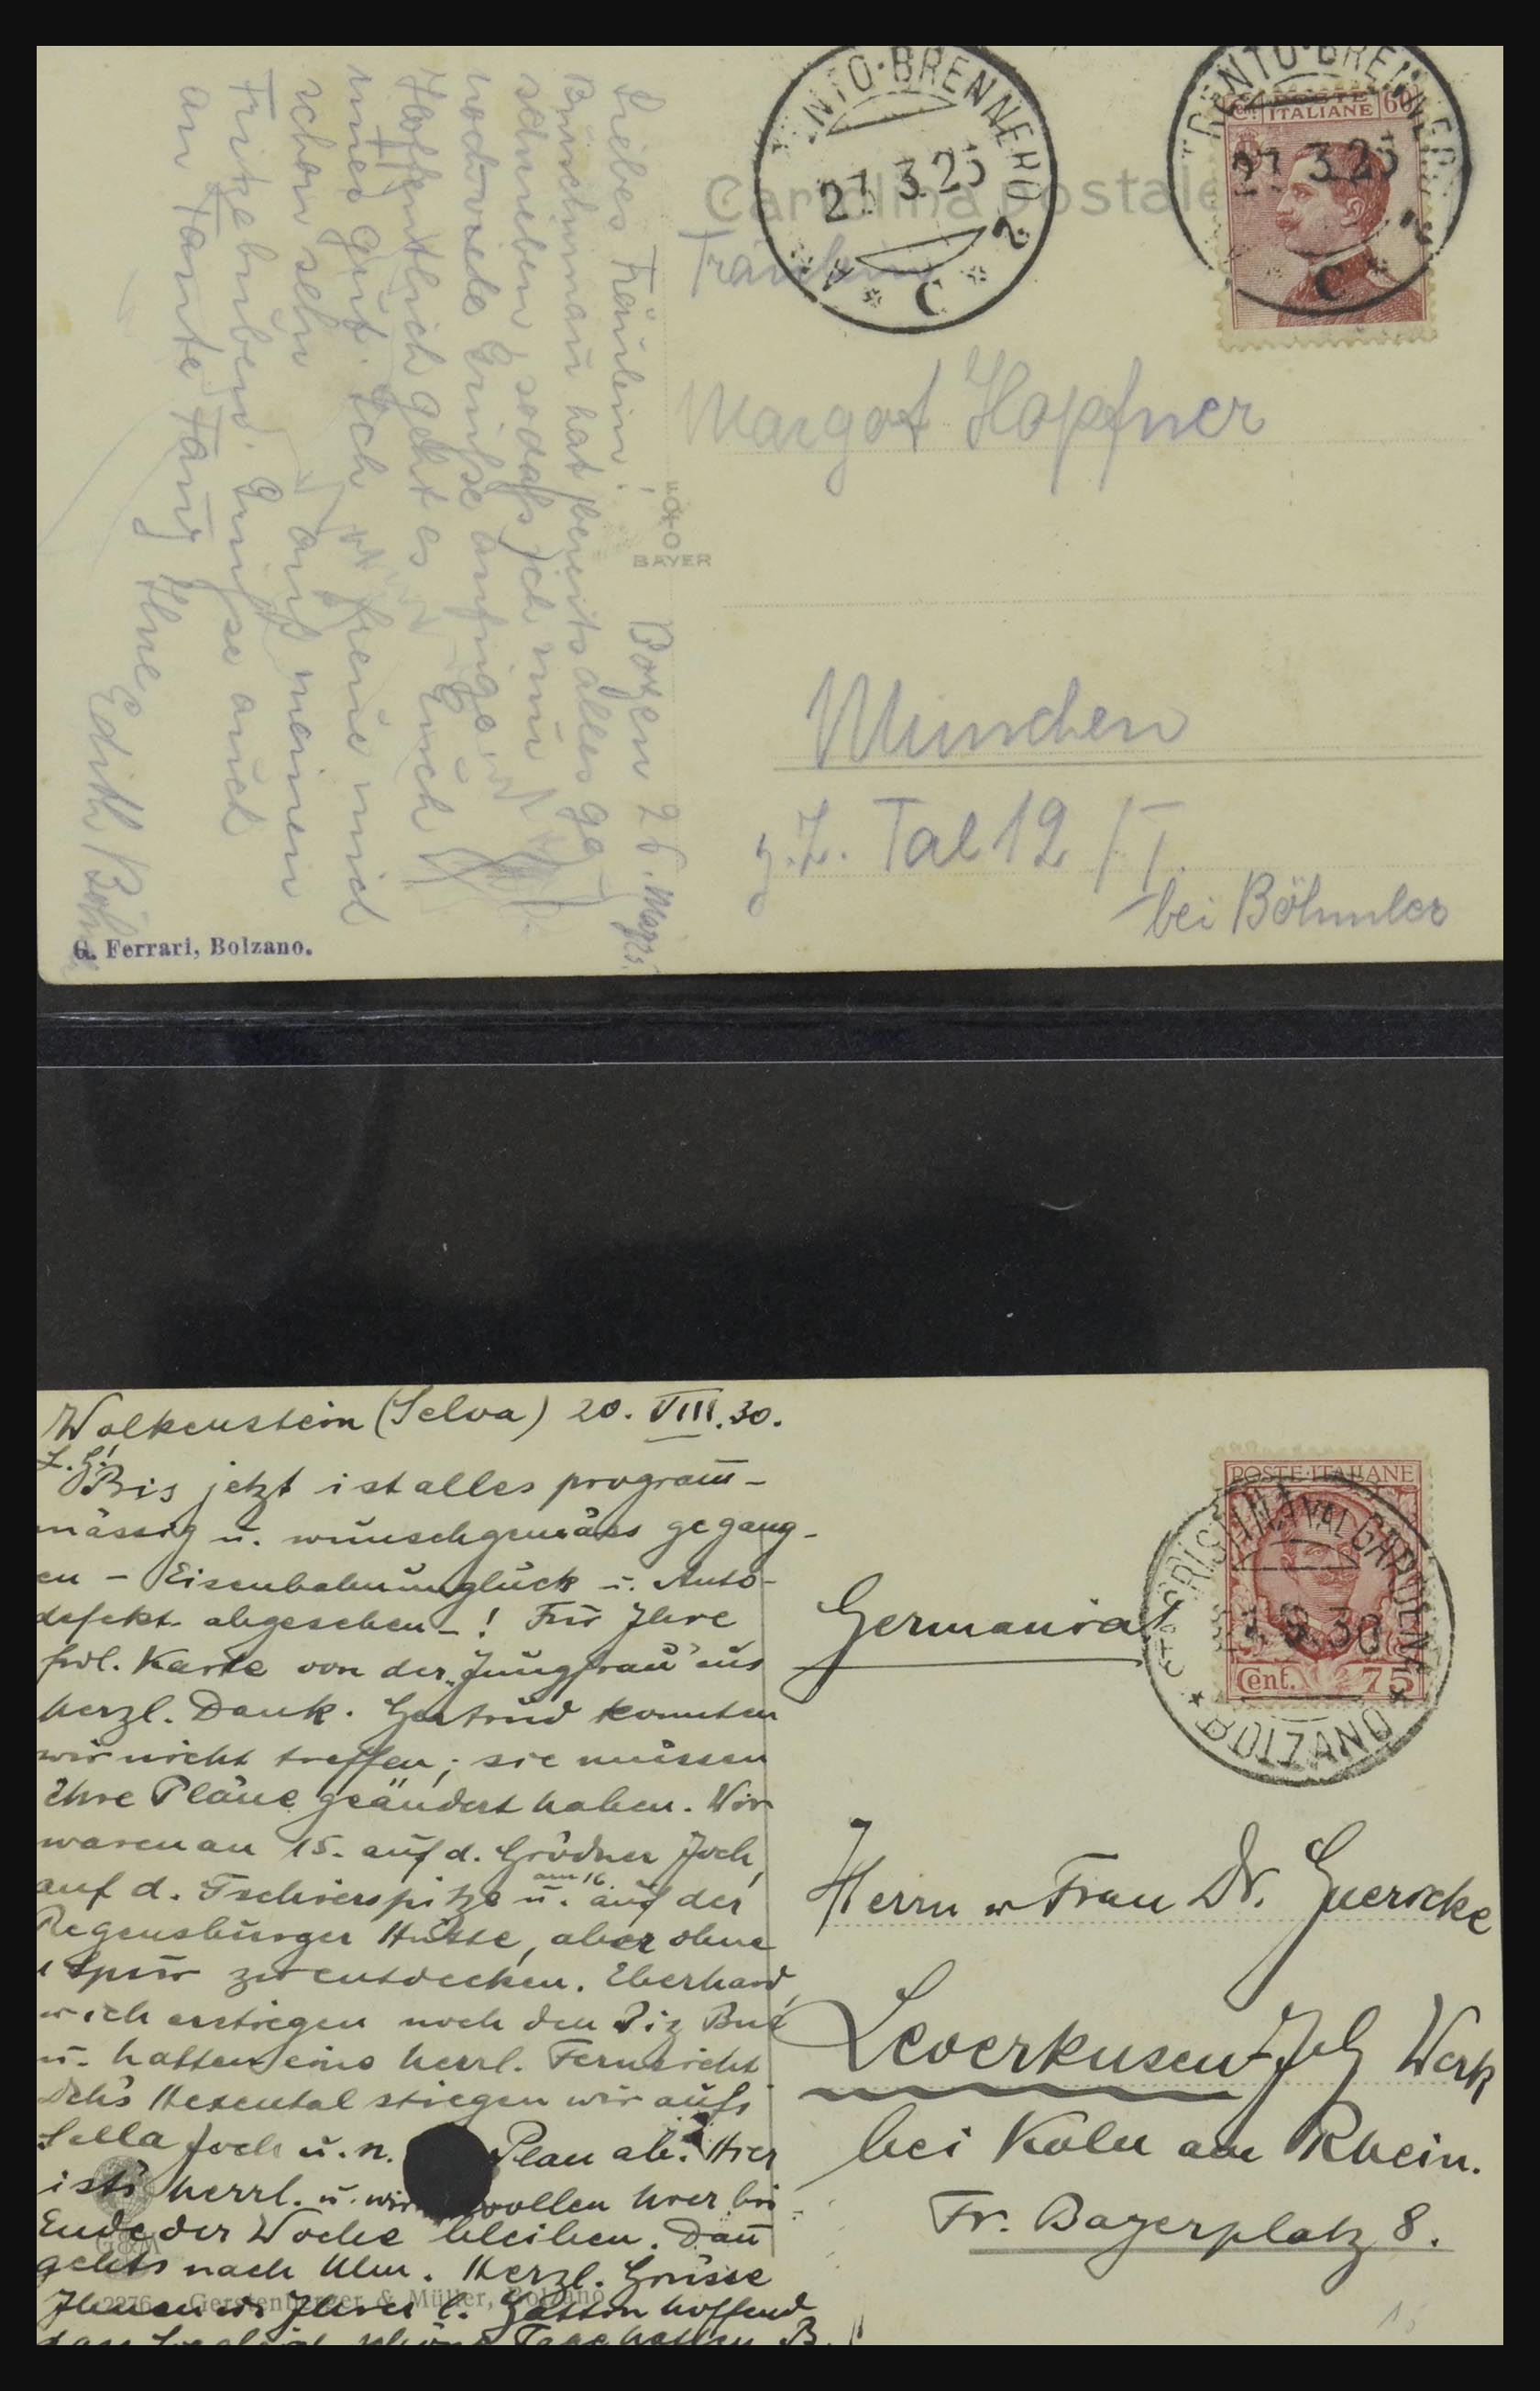 TRENTO-BRENNERO 2
27 3.25
* C *
Cartolina postale
TRENTO-BRENNERO 2
27 3.25
C *
POSTE
ITALIANE
60
Fräulein
Margot Hopfner
München
z. Z. Tal 12 / I.
bei Böhmler
BAYER
Bozen 26. März 25.
Liebes Fräulein!
hat bereits alles ge-
schrieben, sodass ich nur
noch viele Grüsse anfüge.
Hoffentlich geht es Euch
gut. Ich freue mich
schon sehr auf meinen
Grüsse auch
an Tante Fanny Ihre
Edith
G. Ferrari, Bolzano.
Wolkenstein (Selva) 20. VIII. 30.
L. G.!
Bis jetzt ist alles programm-
mässig u. wunschgemäss gegang-
en – Eisenbahnunglück u. Auto-
defekt abgesehen – ! Für Ihre
frdl. Karte von der „Jungfrau" uns
herzl. Dank. Gertrud konnten
wir nicht treffen; sie müssen
Ihre Pläne geändert haben. Wir
waren am 15. auf d. Grödner Joch,
auf d. Tschierspitze u. am 16. auf der
Regensburger Hütte, aber ohne
Spur zu entdecken. Eberhard
u. ich erstiegen noch den Piz
u. hatten eine herrl. Fernsicht
stiegen wir aufs
Sella Joch u. n. Plan ab. Hier
ists herrl. u. wir wollen hier bis
Ende der Woche bleiben. Dann
gehts nach Ulm. Herzl. Grüsse
Ihnen u. Ihrer l. Gattin hoffend
G&M
2276 Gerstenberger & Müller, Bolzano
POSTE ITALIANE
Cent. 75
CRISTINA VALGARDENA
* BOLZANO *
9.30
Germania
Herrn u Frau Dr. Guericke
Leverkusen-J.G. Werk
bei Köln am Rhein.
Fr. Bayerplatz 8.
15